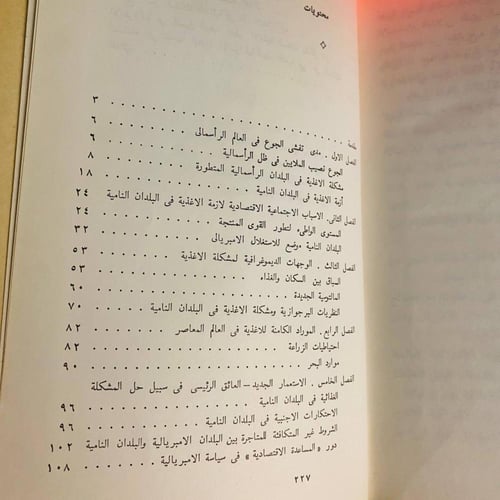 محتويات
مقدمة . . . . . . . . . . . . . . . . . . . ٣
الفصل الاول . مدى تفشي الجوع في العالم الرأسمالي . . . ٦
الجوع نصيب الملايين في ظل الرأسمالية . . . . . ٦
مشكلة الاغذية في البلدان الرأسمالية المتطورة . . . ٨
أزمة الاغذية في البلدان النامية . . . . . . . ١٨
الفصل الثاني. الاسباب الاجتماعية الاقتصادية لازمة الاغذية في البلدان النامية ٢٤
المستوى الواطىء لتطور القوى المنتجة . . . . . ٢٤
البلدان النامية موضع للاستغلال الامبريالي . . . . ٣٢
الفصل الثالث . الوجهات الديموغرافية لمشكلة الاغذية . . . ٥٣
السباق بين السكان والغذاء . . . . . . . . ٥٣
المالتوسية الجديدة . . . . . . . . . . ٦٠
النظريات البرجوازية ومشكلة الاغذية في البلدان النامية . . ٧٠
الفصل الرابع. الموارد الكامنة للاغذية في العالم المعاصر . . . ٨٢
احتياطيات الزراعة . . . . . . . . . . ٨٢
موارد البحر . . . . . . . . . . . . ٩٠
الفصل الخامس . الاستعمار الجديد – العائق الرئيسي في سبيل حل المشكلة
الغذائية في البلدان النامية . . . . . . . . ٩٦
الاحتكارات الاجنبية في البلدان النامية . . . . . ٩٦
الشروط غير المتكافئة للمتاجرة بين البلدان الامبريالية والبلدان النامية ١٠٢
دور «المساعدة الاقتصادية» في سياسة الامبريالية . . . . ١٠٨
٢٢٧